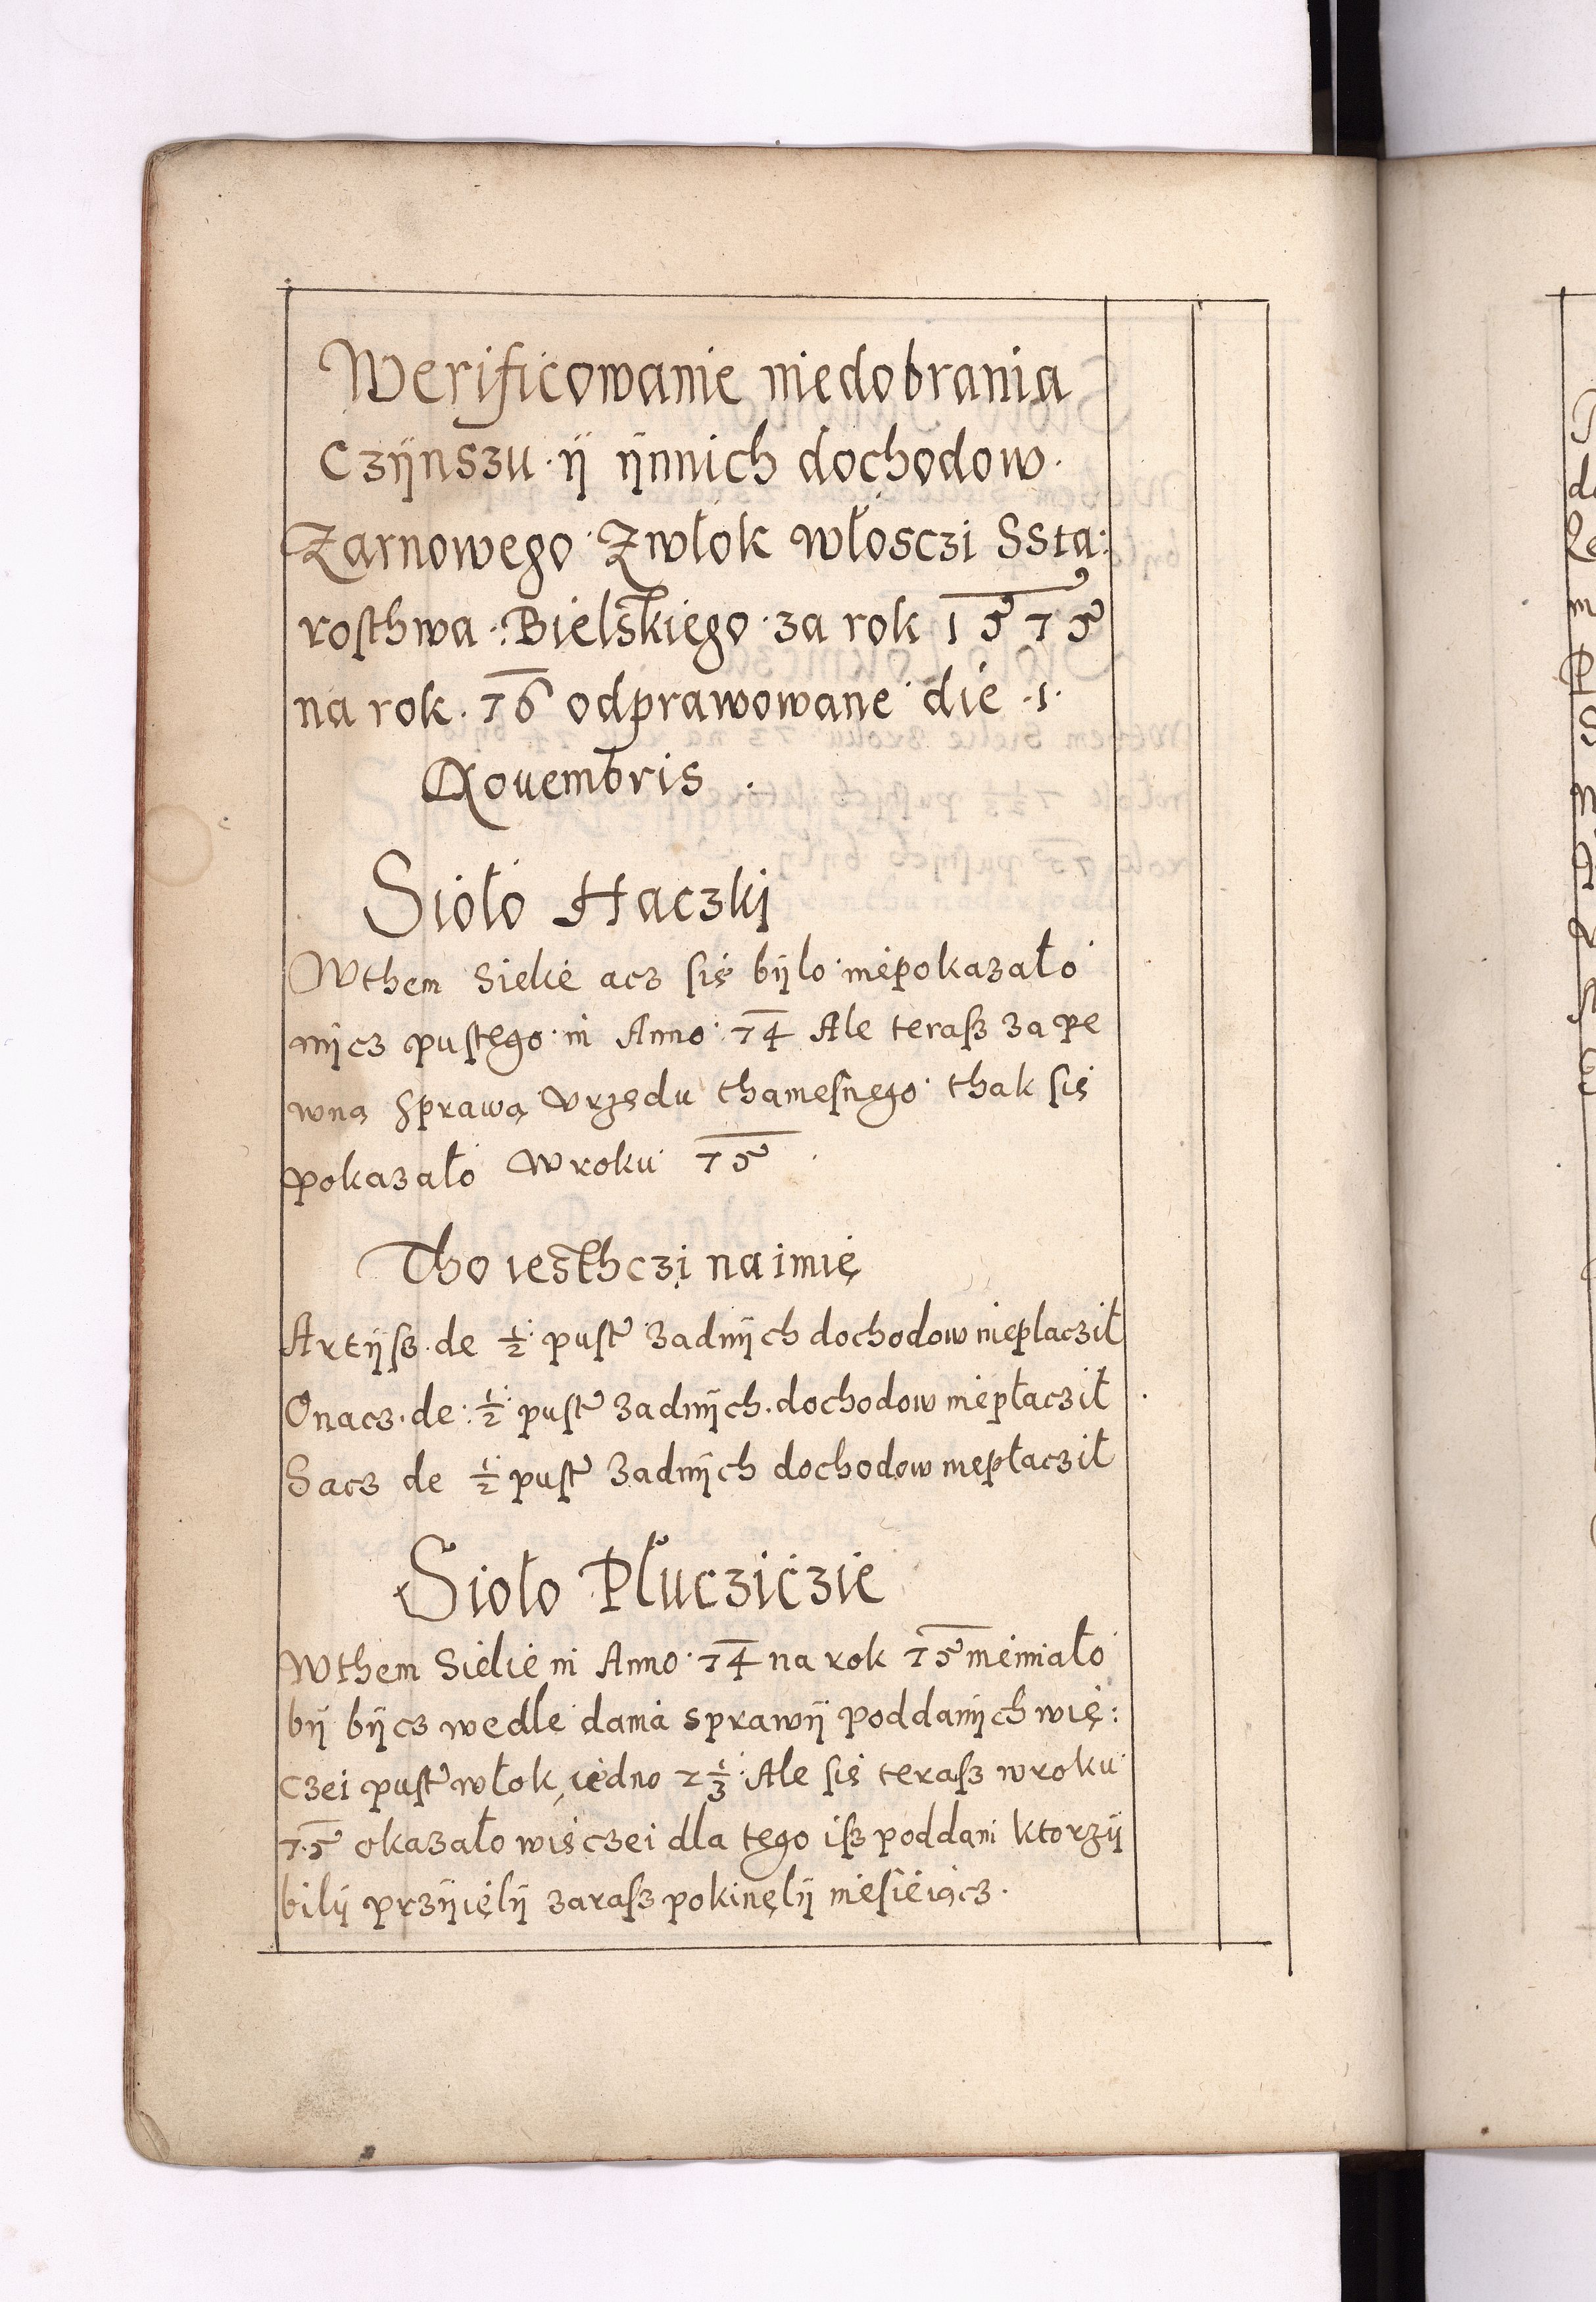 Werificowanie niedobrania
Czÿnszu ÿ ÿnnich dochodow
Zarnowego Zwłok włosczi Ssta:
rosthwa Bielskiego za rok 1575
na rok 76 odprawowane die 1
Nouembris
Sioło Haczki
Wthem Sielie acz się bÿlo niepokazało
nÿcz pustego in Anno 74 Ale terasz za pe
wną Sprawą Vrzędu thameſnego thak się
pokazało W roku 75
Tho iesthczi na imię
Artÿsz de ½ pust zadnÿch dochodow nieplacził
Onacz de ½ pust zadnÿch dochodow niepłacził
Sacz de ½ pust zadnÿch dochodow niepłacził
Sioło Płucziczie
Wthem Sielie in Anno 74 na rok 75 niemiało
bÿ bÿcz wedle dania sprawÿ poddanÿch wię:
czei pust włok, iedno 2⅓ Ale się terasz w roku
75 okazało więczei dla tego isz poddani ktorzÿ
bilÿ przÿięlÿ zarasz pokinęlÿ niesieiącz.